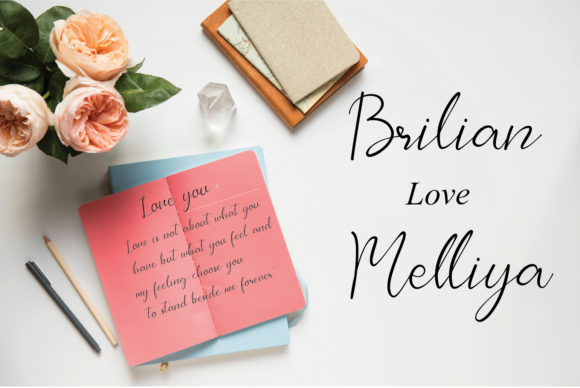 Love you
Love is not about what you
have but what you feel and
my feeling choose you
to stand beside me forever.
Brilian
Love
Melliya